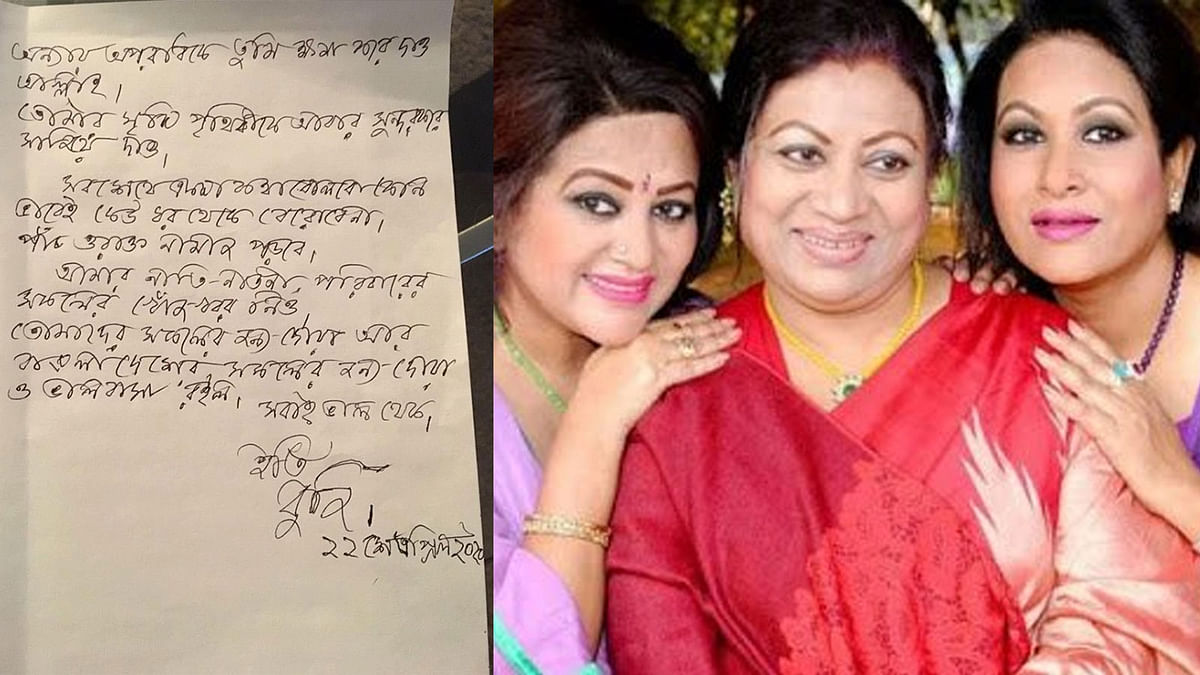 অন্যায় অপরাধকে তুমি ক্ষমা করে দাও
আল্লাহ।
তোমার সৃষ্টি পৃথিবীকে আবার সুন্দর করে
সাজিয়ে দাও।
সবশেষে একটা কথা বোলবো কোন
ভাবেই কেউ ঘর থেকে বেরোবেনা।
পাঁচ ওয়াক্ত নামাজ পড়বে।
আমার নাতি-নাতনী, পরিবারের
সকলের খোঁজ-খবর নিও
তোমাদের সকলের জন্য দোয়া আর
বাঙলা দেশের সকলের জন্য দোয়া
ও ভালবাসা রইল।
সবাই ভাল থেক,
ইতি
২২ শে এপ্রিল ২০২০